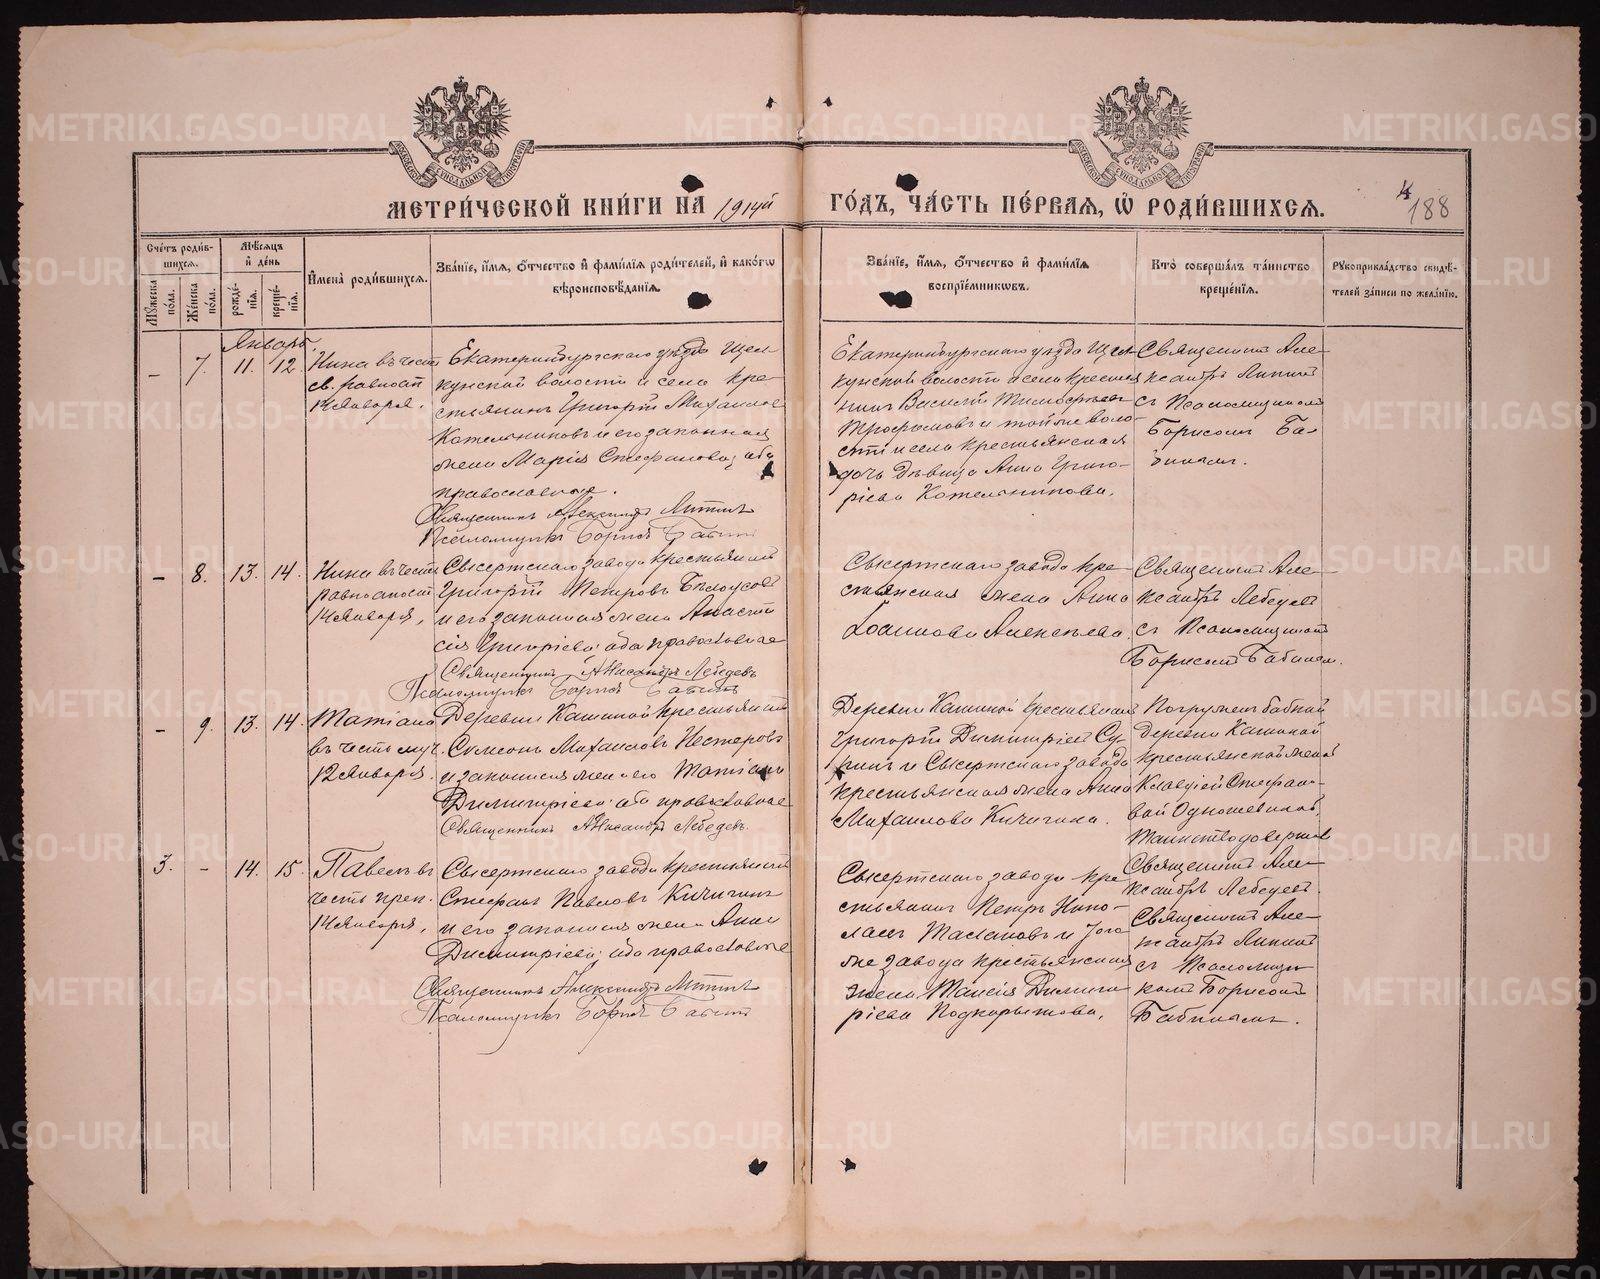 МЕТРИ́ЧЕСКОЙ КНИ́ГИ НА 1914й ГО́ДЪ, ЧА́СТЬ ПЕ́РВАЯ, Ѡ҆ РОДИ́ВШИХСЯ.
188
Сче́тъ роди́вшихся.
Му́жеска по́ла.
Же́нска по́ла.
Мѣ́сяцъ и҆ де́нь
рожде́нія.
креще́нія.
И҆мена̀ роди́вшихся.
Зва́ніе, и҆́мя, ѻ҆́тчество и҆ фами́лія роди́телей, и҆ како́гѡ
вѣроисповѣ́данія.
Зва́ніе, и҆́мя, ѻ҆́тчество и҆ фами́лія
воспріе́мникѡвъ.
Кто̀ соверша́лъ та́инство
креще́нія.
Рукоприкла́дство свидѣ́-
телей за́писи по жела́нію.
Январь
- 7. 11. 12.
Нина въ честь
св. равноап.
14 Января.
Екатеринбургскаго уѣзда Щел-
кунской волости и села кре-
стьянинъ Григорій Михаиловъ
Котельниковъ и его законная
жена Марія Стефанова; оба
православные.
Священникъ Александръ
Псаломщикъ Борисъ Бабинъ
Екатеринбургскаго уѣзда Щел-
кунской волости и села крестья-
нинъ Василій
Трофимовъ и той же воло-
сти и села крестьянская
дочь дѣвица Анна Григо-
ріева Котельникова.
Священникъ Але-
ксандръ
съ Псаломщикомъ
Борисомъ Ба-
бинымъ.
- 8. 13. 14.
Нина въ честь
равноапост.
14 Января.
Сысертскаго завода крестьянинъ
Григорій Петровъ Бѣлоусовъ
и его законная жена Анаста-
сія Григоріева; оба православные
Священникъ Александръ Лебедевъ
Псаломщикъ Борисъ Бабинъ
Сысертскаго завода кре-
стьянская жена Анна
Іоаннова Алексѣева.
Священникъ Але-
ксандръ Лебедевъ
съ Псаломщикомъ
Борисомъ Бабинымъ.
- 9. 13. 14.
Татіана
въ честь муч.
12 Января.
Деревни Кашиной крестьянинъ
Симеонъ Михаиловъ Нестеровъ
и законная жена его Татіана
Димитріева; оба православные
Священникъ Александръ Лебедевъ.
Деревни Кашиной крестьянинъ
Григорій Димитріевъ
и Сысертскаго завода
крестьянская жена Анна
Михаилова Кичигина.
Погруженъ бабкой
деревни Кашиной
крестьянской женой
Клавдіей Стефано-
вой
Таинство довершилъ
Священникъ Але-
ксандръ Лебедевъ.
3. - 14. 15.
Павелъ въ
честь преп.
14 Января.
Сысертскаго завода крестьянинъ
Стефанъ Павловъ Кичигинъ
и его законная жена Анна
Димитріева; оба православные
Священникъ Александръ
Псаломщикъ Борисъ Бабинъ
Сысертскаго завода кре-
стьянинъ Петръ Нико-
лаевъ и того
же завода крестьянская
жена Таисія Димит-
ріева Подкорытова.
Священникъ Але-
ксандръ
съ Псаломщи-
комъ Борисомъ
Бабинымъ.
METRIKI.GASO-URAL.RU